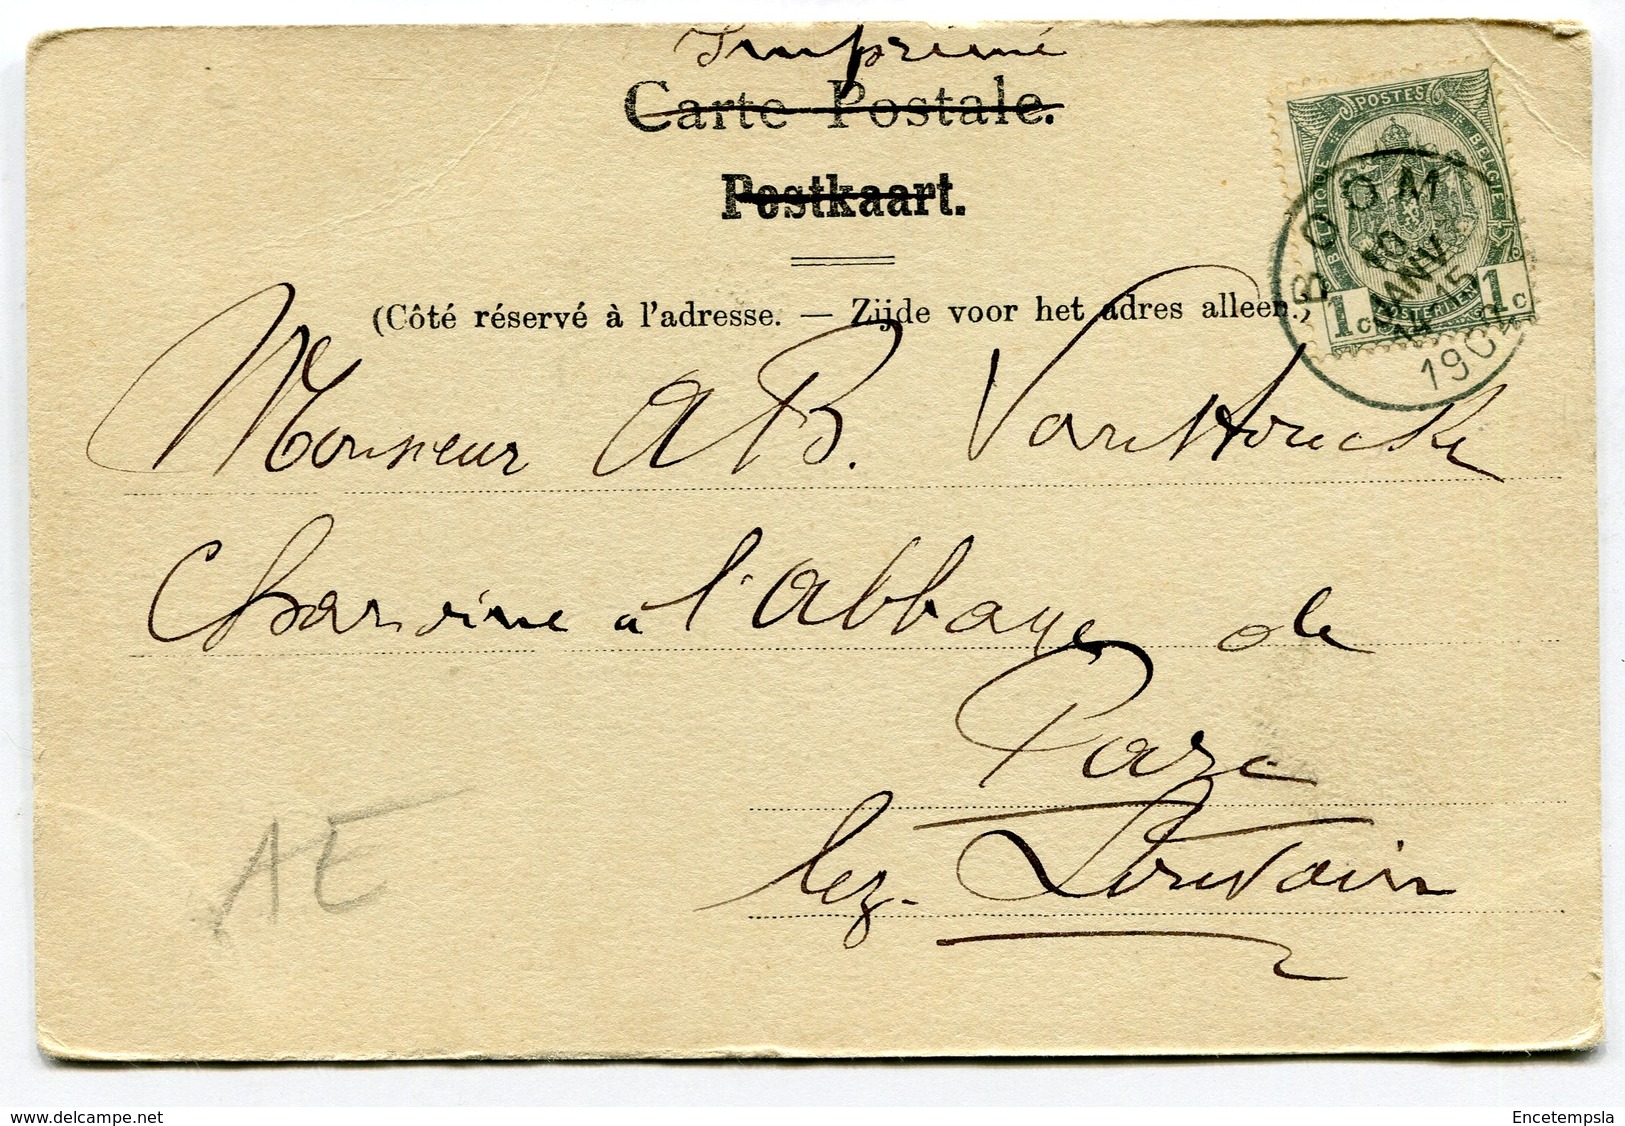 Imprimé
Carte Postale.
Postkaart.
(Côté réservé à l'adresse. — Zijde voor het adres alleen.)
POSTES
BELGIQUE
BELGIË
1c 1c
BOOM
10
JANV
15
1902
Monsieur A B. Van Houcke
Chanoine à l'Abbaye de
Parc
lez-Louvain
AE
www.delcampe.net
Encetempsla